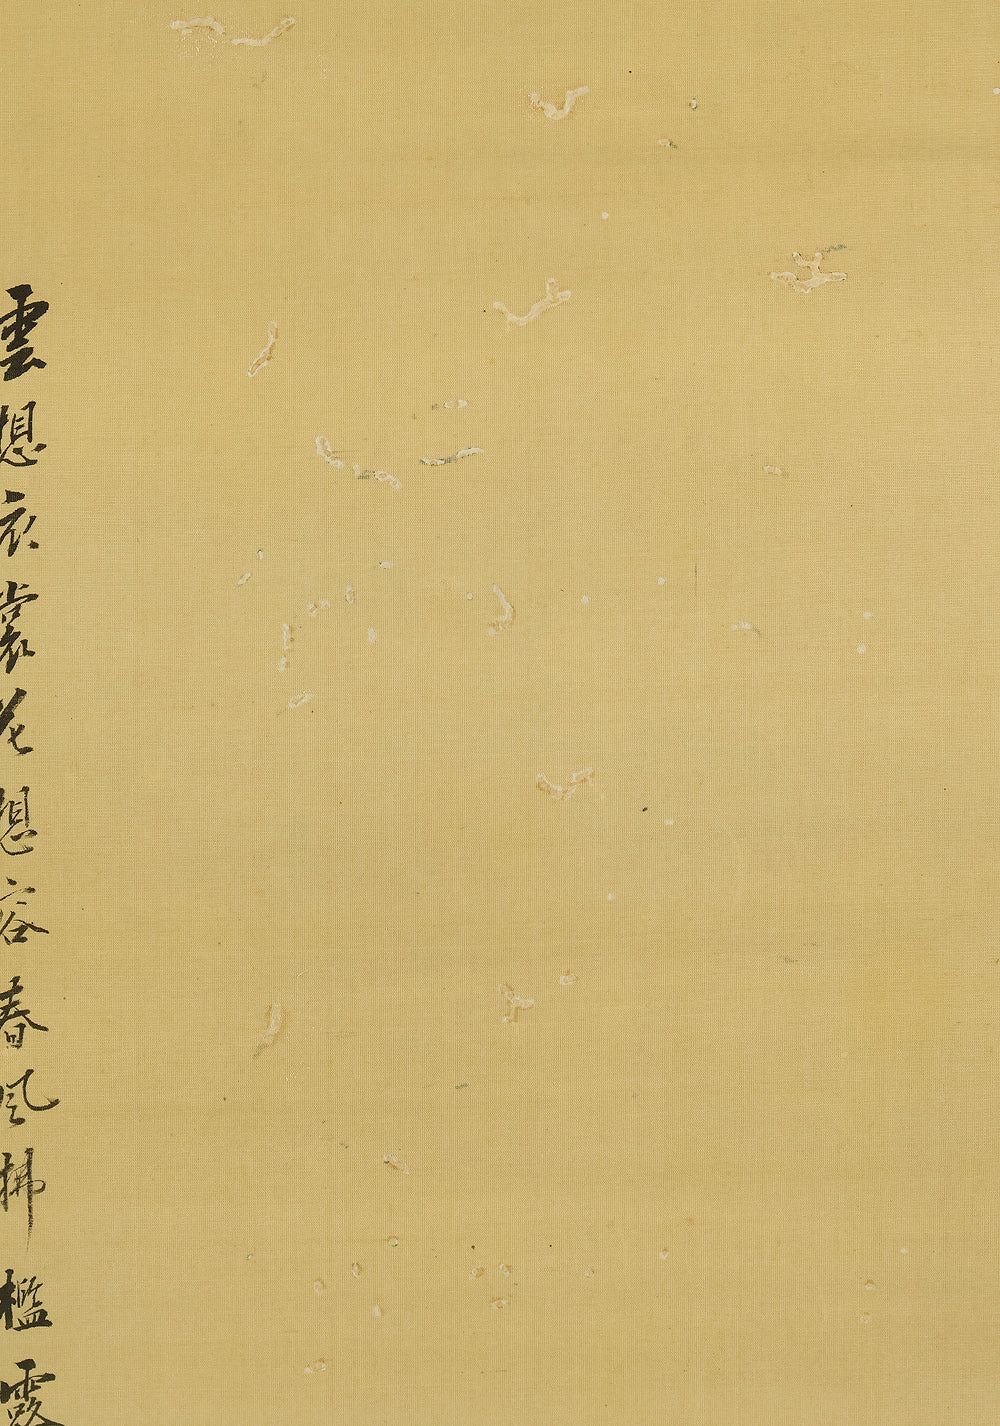 雲想衣裳花想容春風拂檻露